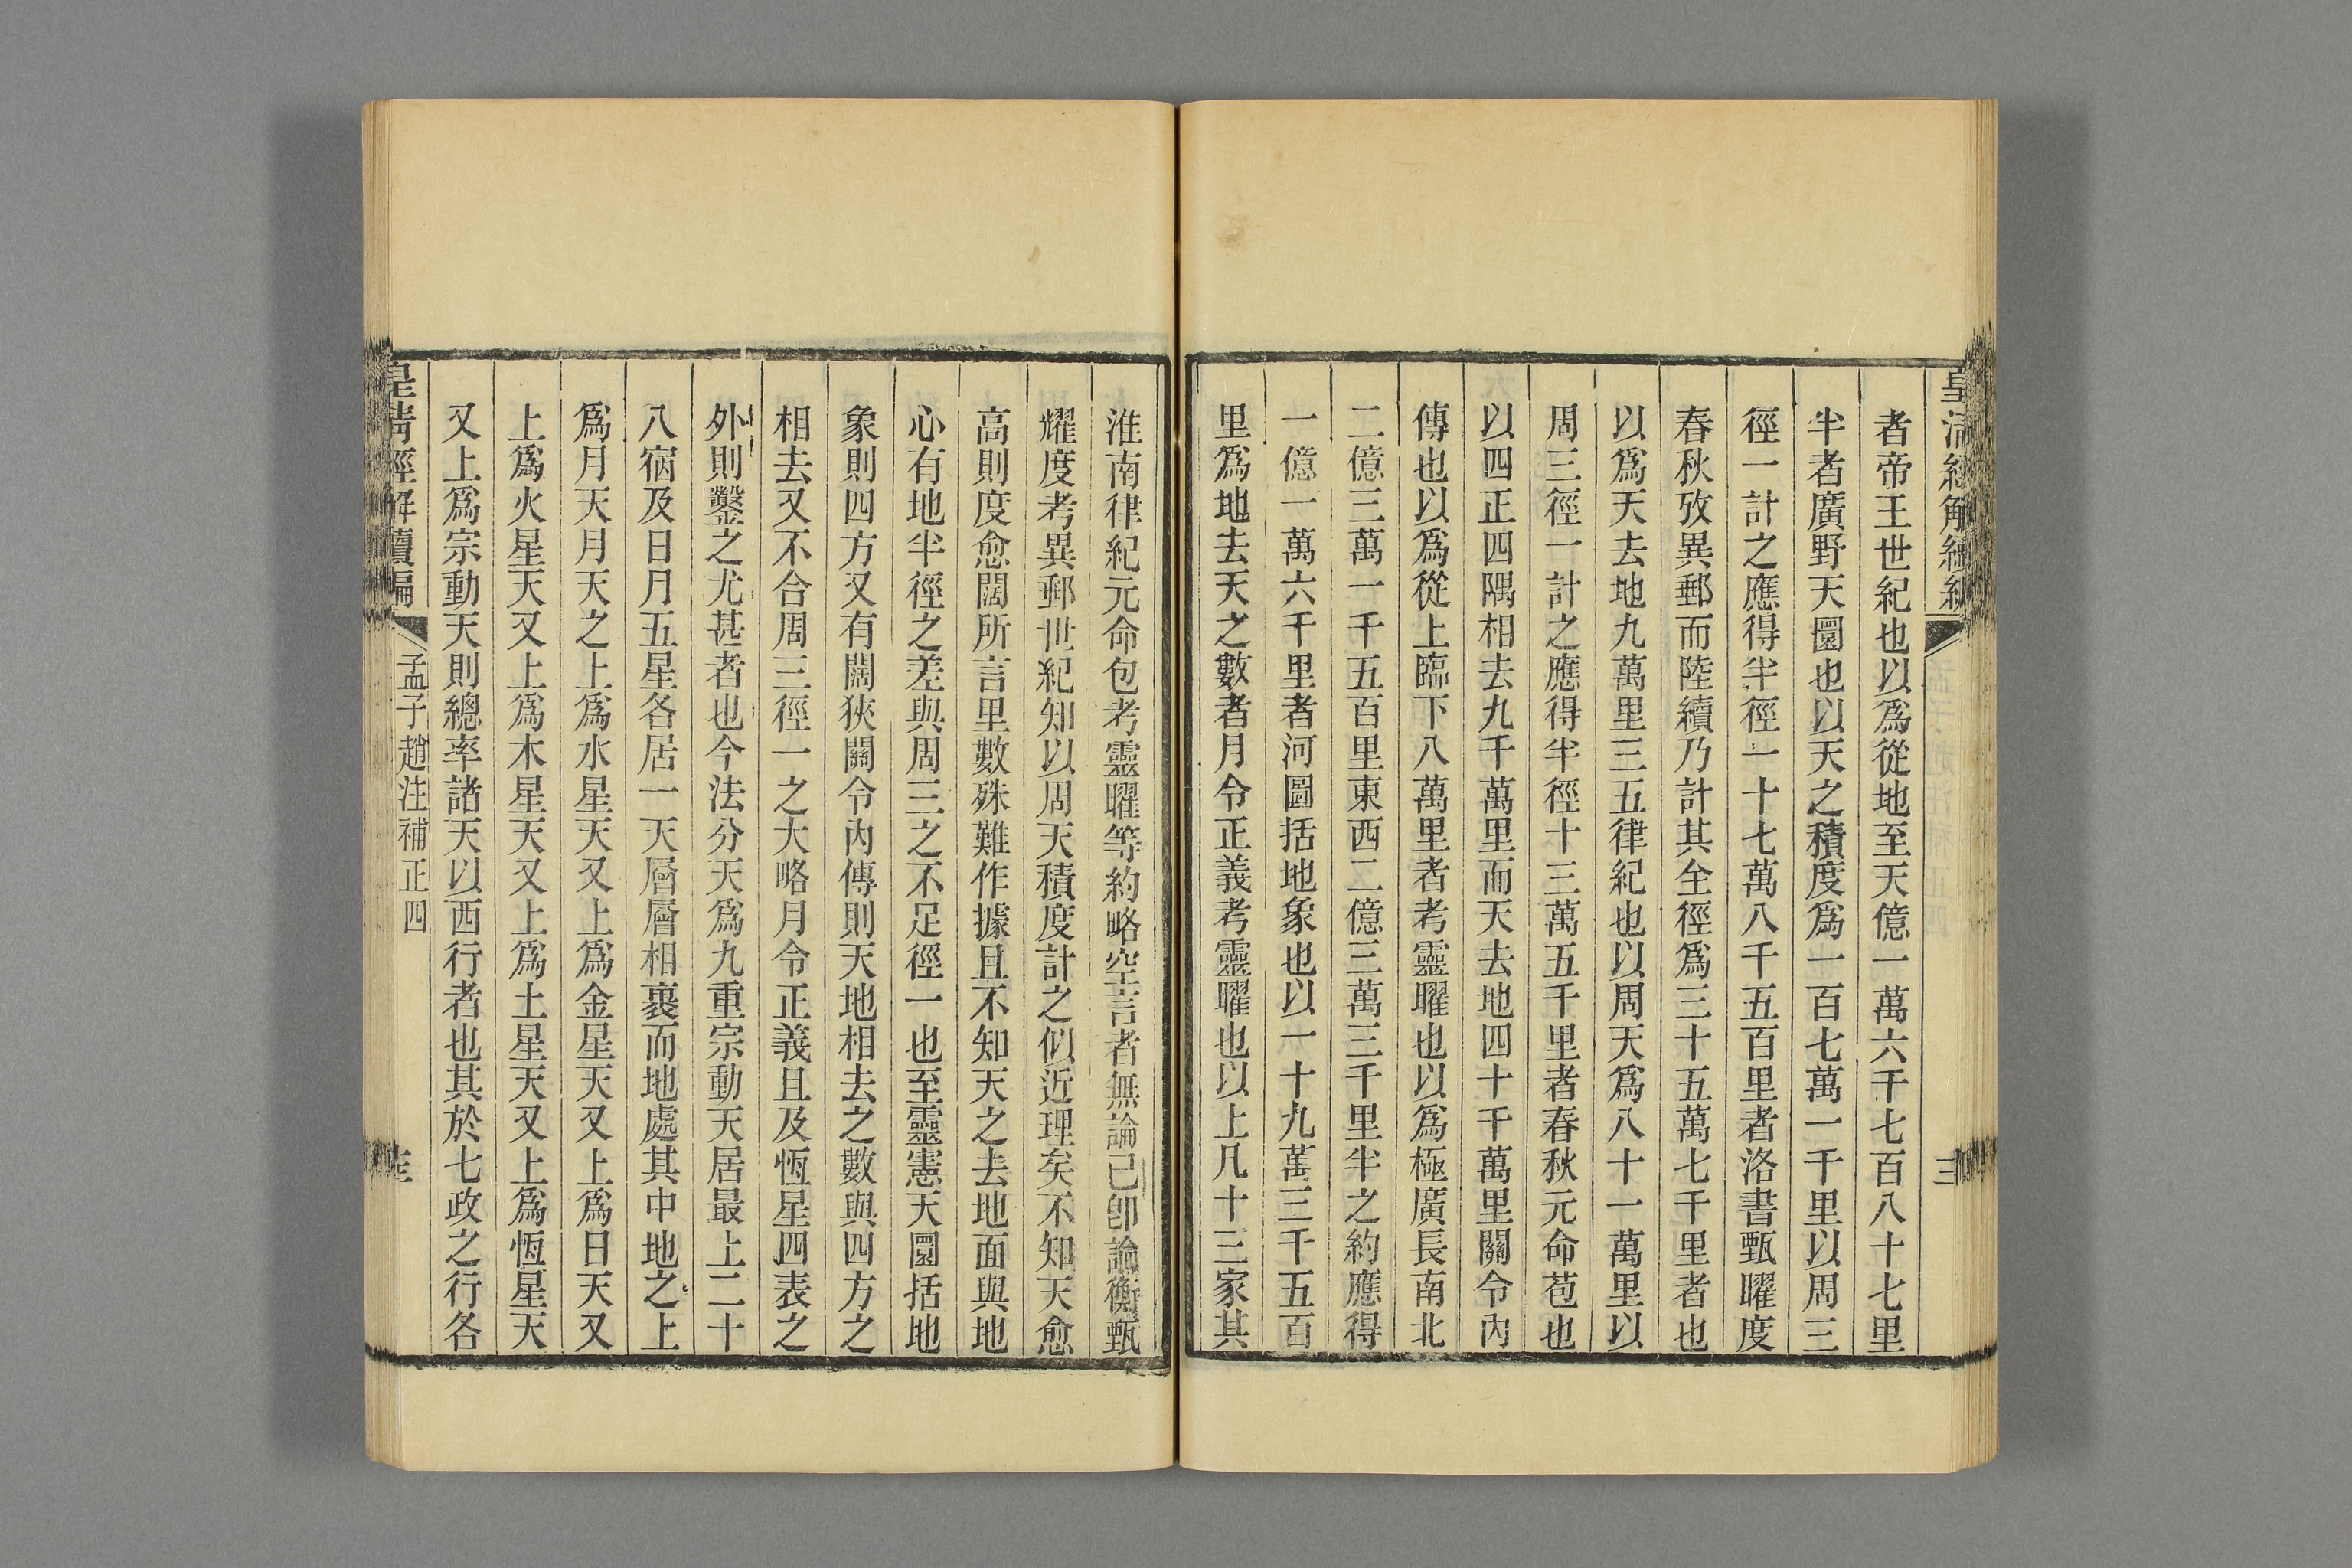 皇清經解續編
三
者帝王世紀也以爲從地至天億一萬六千七百八十七里
半者廣野天圜也以天之積度爲一百七萬一千里以周三
徑一計之應得半徑一十七萬八千五百里者洛書甄曜度
春秋攷異郵而陸續乃計其全徑爲三十五萬七千里者也
以爲天去地九萬里三五律紀也以周天爲八十一萬里以
周三徑一計之應得半徑十三萬五千里者春秋元命苞也
以四正四隅相去九千萬里而天去地四十千萬里關令內
傳也以爲從上臨下八萬里者考靈曜也以爲極廣長南北
二億三萬一千五百里東西二億三萬三千里半之約應得
一億一萬六千里者河圖括地象也以一十九萬三千五百
里爲地去天之數者月令正義考靈曜也以上凡十三家其
淮南律紀元命包考靈曜等約略空言者無論已卽論衡甄
耀度考異郵世紀知以周天積度計之似近理矣不知天愈
高則度愈闊所言里數殊難作據且不知天之去地面與地
心有地半徑之差與周三之不足徑一也至靈憲天圜括地
象則四方又有闊狹關令內傳則天地相去之數與四方之
相去又不合周三徑一之大略月令正義且及恆星四表之
外則鑿之尤甚者也今法分天爲九重宗動天居最上二十
八宿及日月五星各居一天層層相裹而地處其中地之上
爲月天月天之上爲水星天又上爲金星天又上爲日天又
上爲火星天又上爲木星天又上爲土星天又上爲恆星天
又上爲宗動天則總率諸天以西行者也其於七政之行各
皇清經解續編
孟子趙注補正四